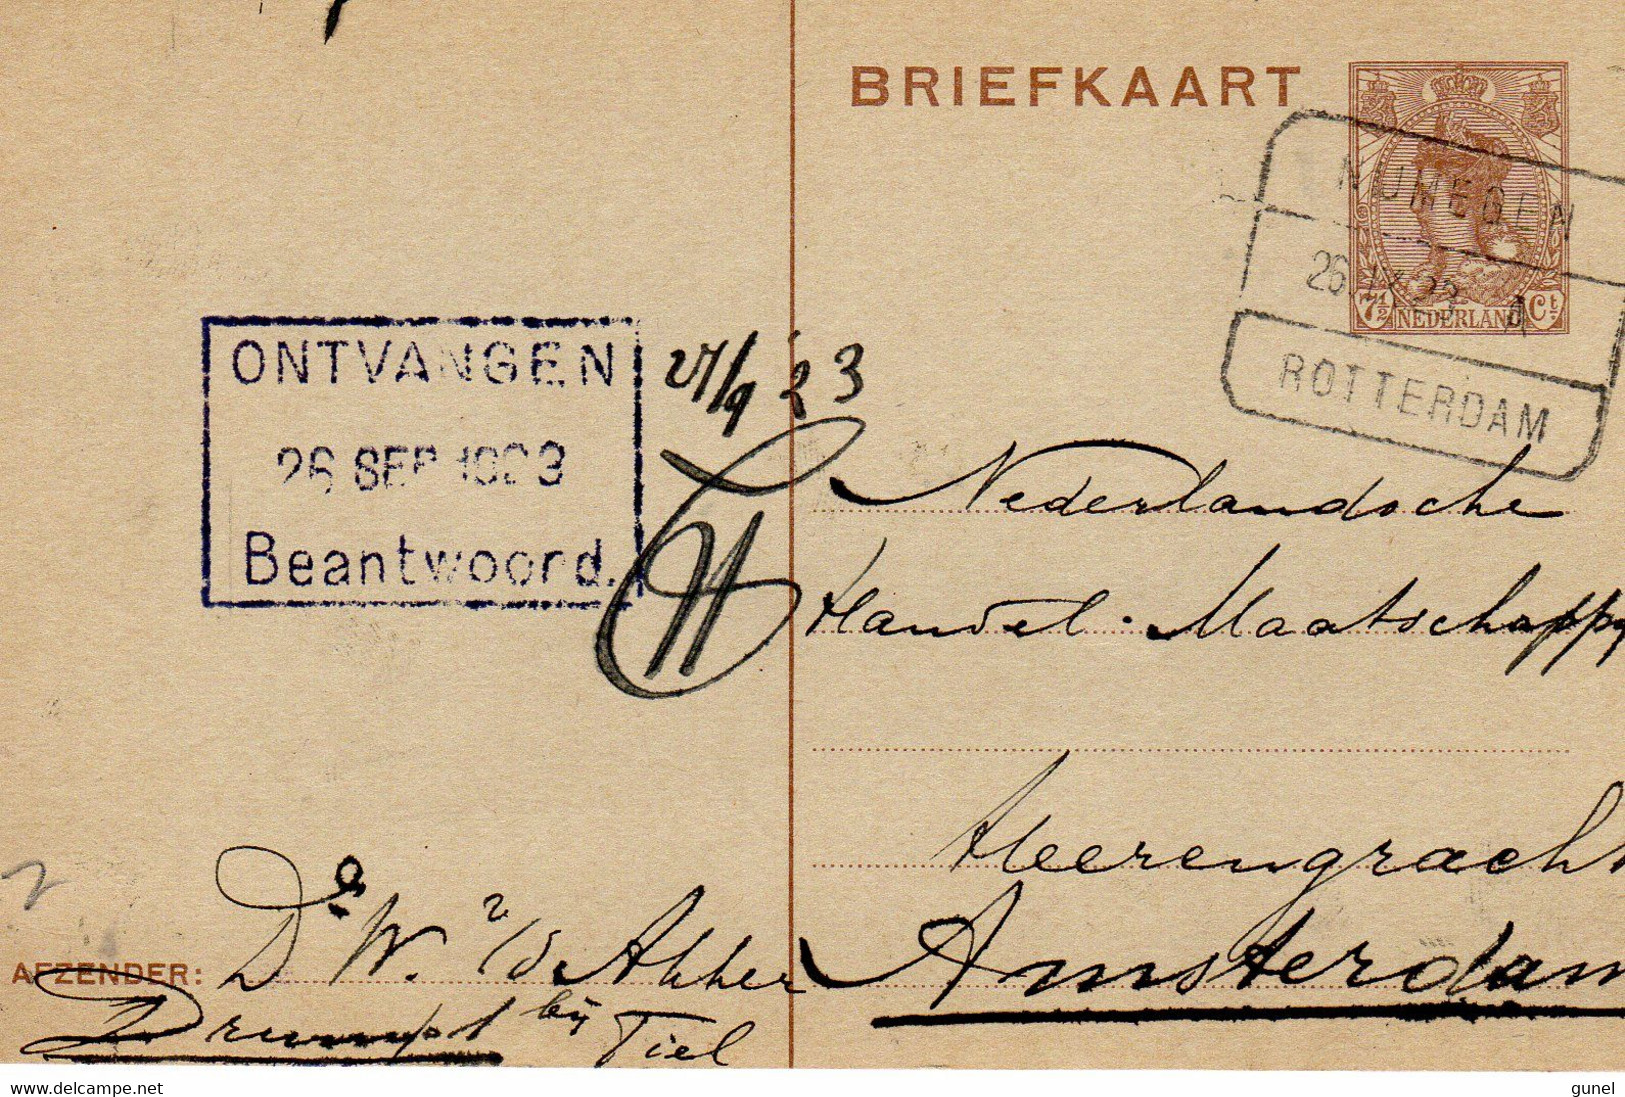 BRIEFKAART
NIJMEGEN
26 IX 23 A
ROTTERDAM
7½ NEDERLAND Ct
ONTVANGEN
26 SEP 1923
Beantwoord.
27/9 '23
Nederlandsche
Handel-Maatschappy
Heerengracht
Amsterdam
AFZENDER: Ds W. v/d Akker
Drumpt bij Tiel
www.delcampe.net
gunel